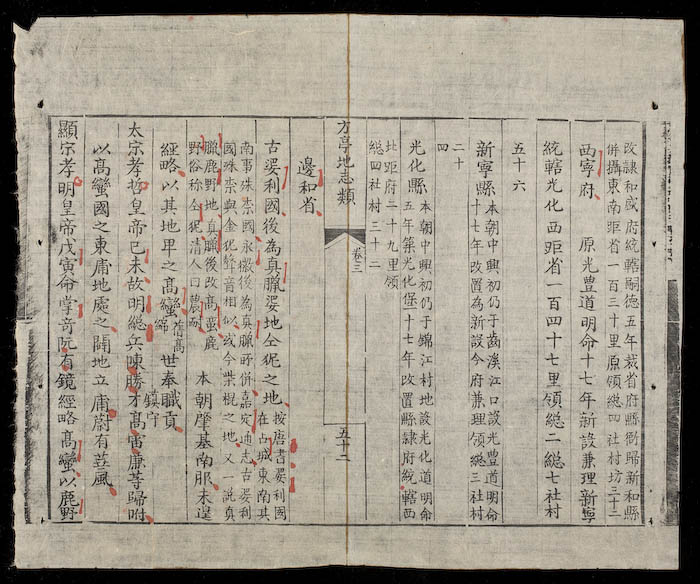 改隸和盛府統轄嗣德五年裁省府縣衙歸新和縣
併攝東南距省一百三十里原領總四社村坊三十二
西寧府 原光豊道明命十七年新設兼理新寧
統轄光化西距省一百四十七里領總二總七社村
五十六
新寧縣 本朝中興初仍于齒溪江口設光豊道明命
十七年改置為新設今府兼理領總三社村
二十
四
光化縣 本朝中興初仍于錦江村地設光化道明命
五年築光化堡十七年改置縣隸府統轄西
北距府二十九里領
總四社村三十二
方亭地志類 卷三 五十二
邊和省
古婆利國後為真臘婆地仝狔之地 按唐書婆利國
在占城東南其
南事殊柰國永徽後為真臘所併嘉定通志古婆利
國殊柰與仝狔聲音相似或今柴棍之地又一說真
臘鹿野地真臘後改高蠻鹿
野俗称仝狔清人曰農耐 本朝肇基南服未遑
經略以其地畀之高蠻 綿符高
綿 世奉職貢
太宗孝哲皇帝己未故明總兵陳勝才高雷廉等歸附
鎮守
以高蠻國之東浦地處之闢地立庸蔚有華風
顯宗孝明皇帝戊寅命掌竒阮有鏡經略高蠻以鹿野